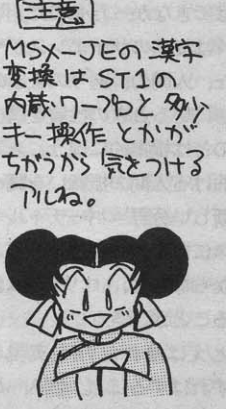 注意
MSX-JEの漢字
変換はST1の
内蔵ワープロと多少
キー操作とかが
ちがうから気をつける
アルね。